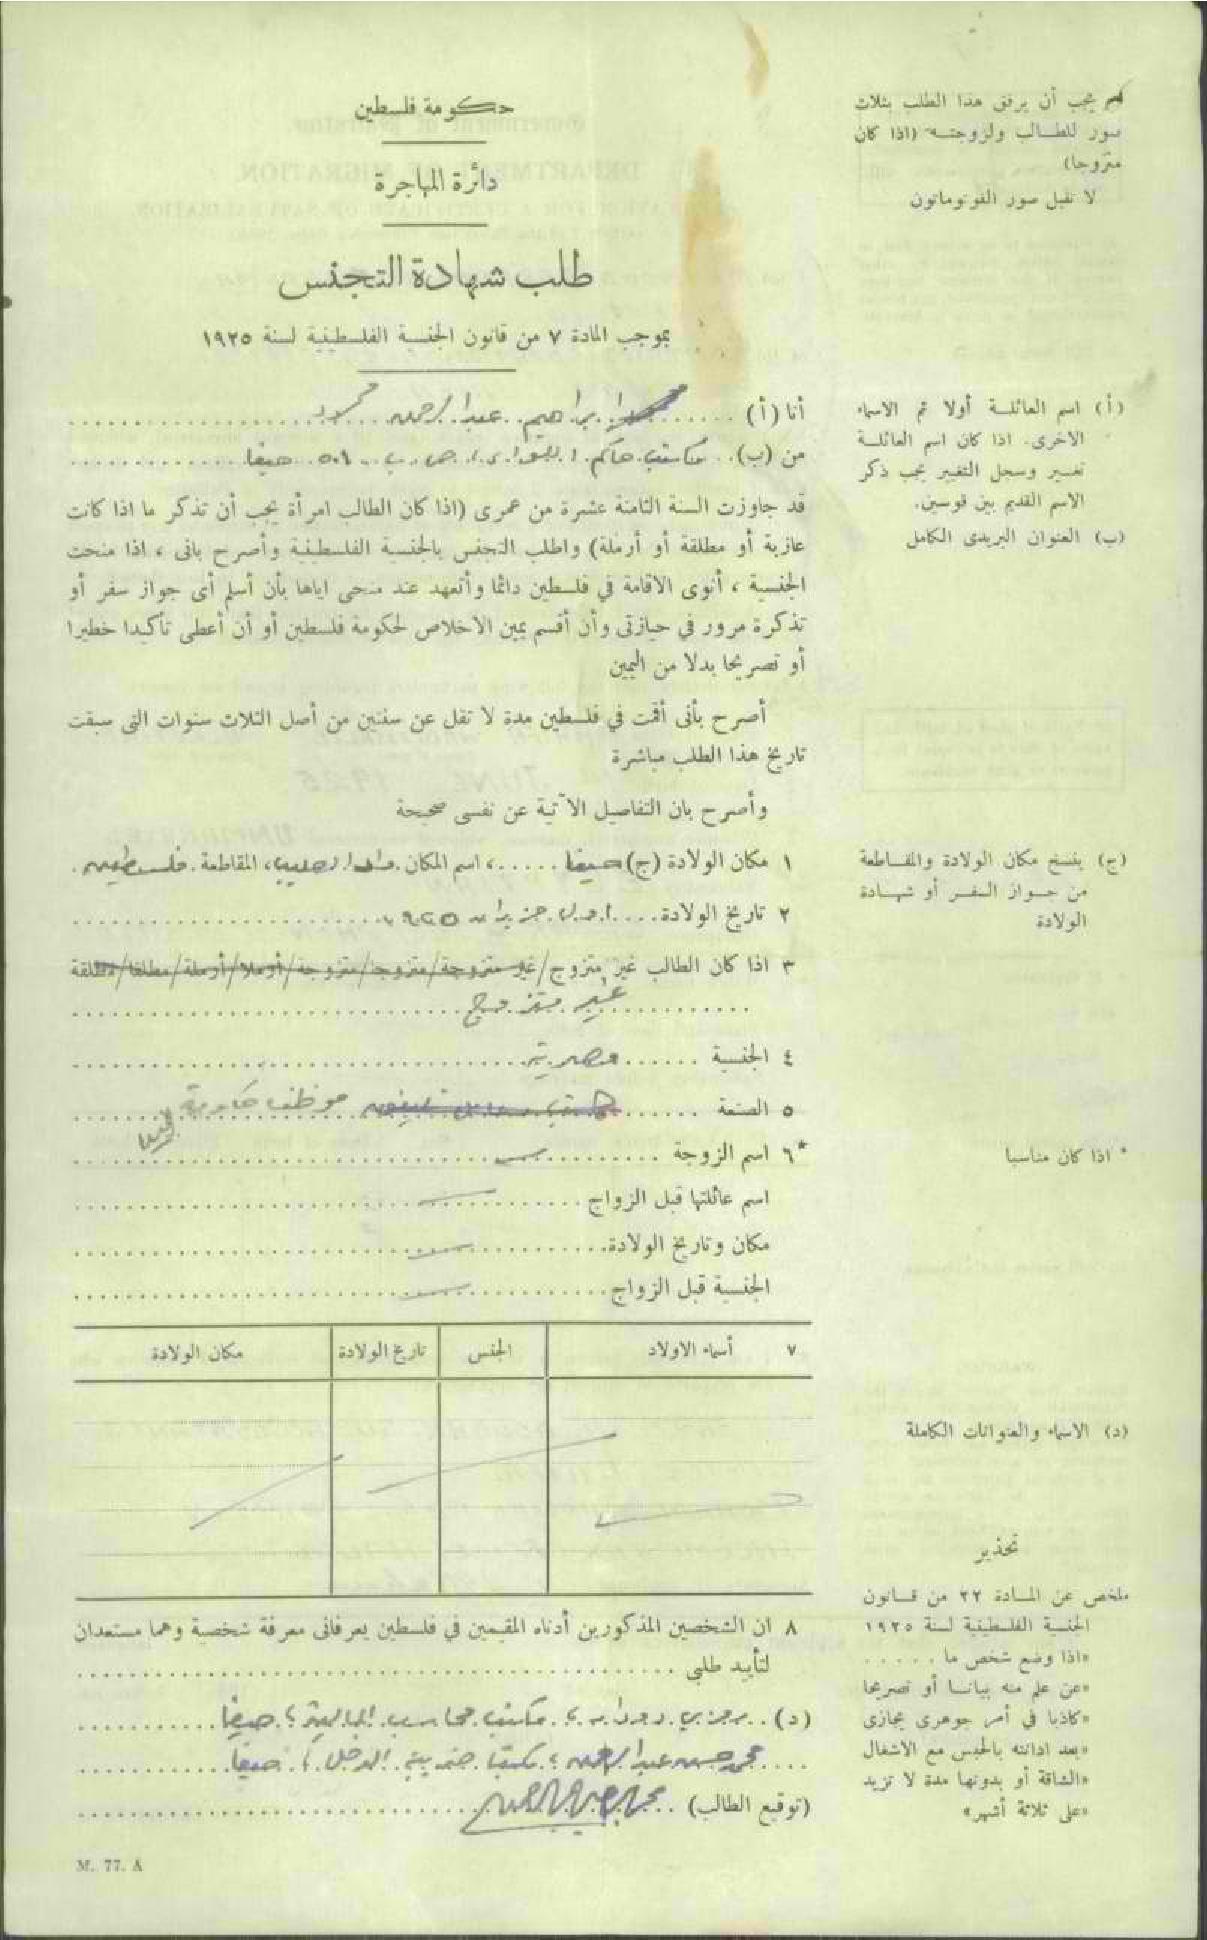 حكومة فلسطين
دائرة المهاجرة
طلب شهادة التجنس
بموجب المادة ٧ من قانون الجنسية الفلسطينية لسنة ١٩٢٥
يجب أن يرفق هذا الطلب بثلاث
صور للطالب ولزوجته (اذا كان
متزوجا)
لا تقبل صور الفوتوماتون
أنا (أ) ابراهيم عبد الرحمن
(أ) اسم العائلة أولا ثم الاسماء
الاخرى. اذا كان اسم العائلة
تغيير وسجل التغيير يجب ذكر
الاسم القديم بين قوسين.
من (ب) مكتب حاكم اللواء، ص. ب. ٥٠١ حيفا
(ب) العنوان البريدى الكامل
قد جاوزت السنة الثامنة عشرة من عمرى (اذا كان الطالب امرأة يجب أن تذكر ما اذا كانت
عازبة أو مطلقة أو أرملة) واطلب التجنس بالجنسية الفلسطينية وأصرح بانى ، اذا منحت
الجنسية ، أنوى الاقامة في فلسطين دائما وأتعهد عند منحى اياها بأن أسلم أى جواز سفر أو
تذكرة مرور في حيازتى وأن أقسم يمين الاخلاص لحكومة فلسطين أو أن أعطى تأكيدا خطيرا
أو تصريحا بدلا من اليمين
أصرح بأنى أقمت في فلسطين مدة لا تقل عن سنتين من أصل الثلاث سنوات التى سبقت
تاريخ هذا الطلب مباشرة
وأصرح بان التفاصيل الآتية عن نفسى صحيحة
١ مكان الولادة (ج) حيفا ، اسم المكان وادى الصليب، المقاطعة فلسطين
(ج) ينسخ مكان الولادة والمقاطعة
من جواز السفر أو شهادة
الولادة
٢ تاريخ الولادة حزيران ١٩٢٥
٣ اذا كان الطالب غير متزوج/غير متزوجة/متزوجا/متزوجة/أرملا/أرملة/مطلقا/مطلقة
غير متزوج
٤ الجنسية مصرية
٥ الصنعة موظف حكومة
*٦ اسم الزوجة
* اذا كان مناسبا
اسم عائلتها قبل الزواج
مكان وتاريخ الولادة
الجنسية قبل الزواج
٧ أسماء الاولاد الجنس تاريخ الولادة مكان الولادة
(د) الاسماء والعنوانات الكاملة
٨ ان الشخصين المذكورين أدناه المقيمين في فلسطين يعرفانى معرفة شخصية وهما مستعدان
لتأييد طلبى
(د) مكتب محاسب المالية ، حيفا
محمد حسن عبد الرحمن ، مكتب ضريبة الدخل ، حيفا
(توقيع الطالب)
تحذير
ملخص عن المادة ٢٢ من قانون
الجنسية الفلسطينية لسنة ١٩٢٥
«اذا وضع شخص ما . . . . .
«عن علم منه بيانا أو تصريحا
«كاذبا في أمر جوهرى يجازى
«بعد ادانته بالحبس مع الاشغال
«الشاقة أو بدونها مدة لا تزيد
«على ثلاثة أشهر»
M. 77. A